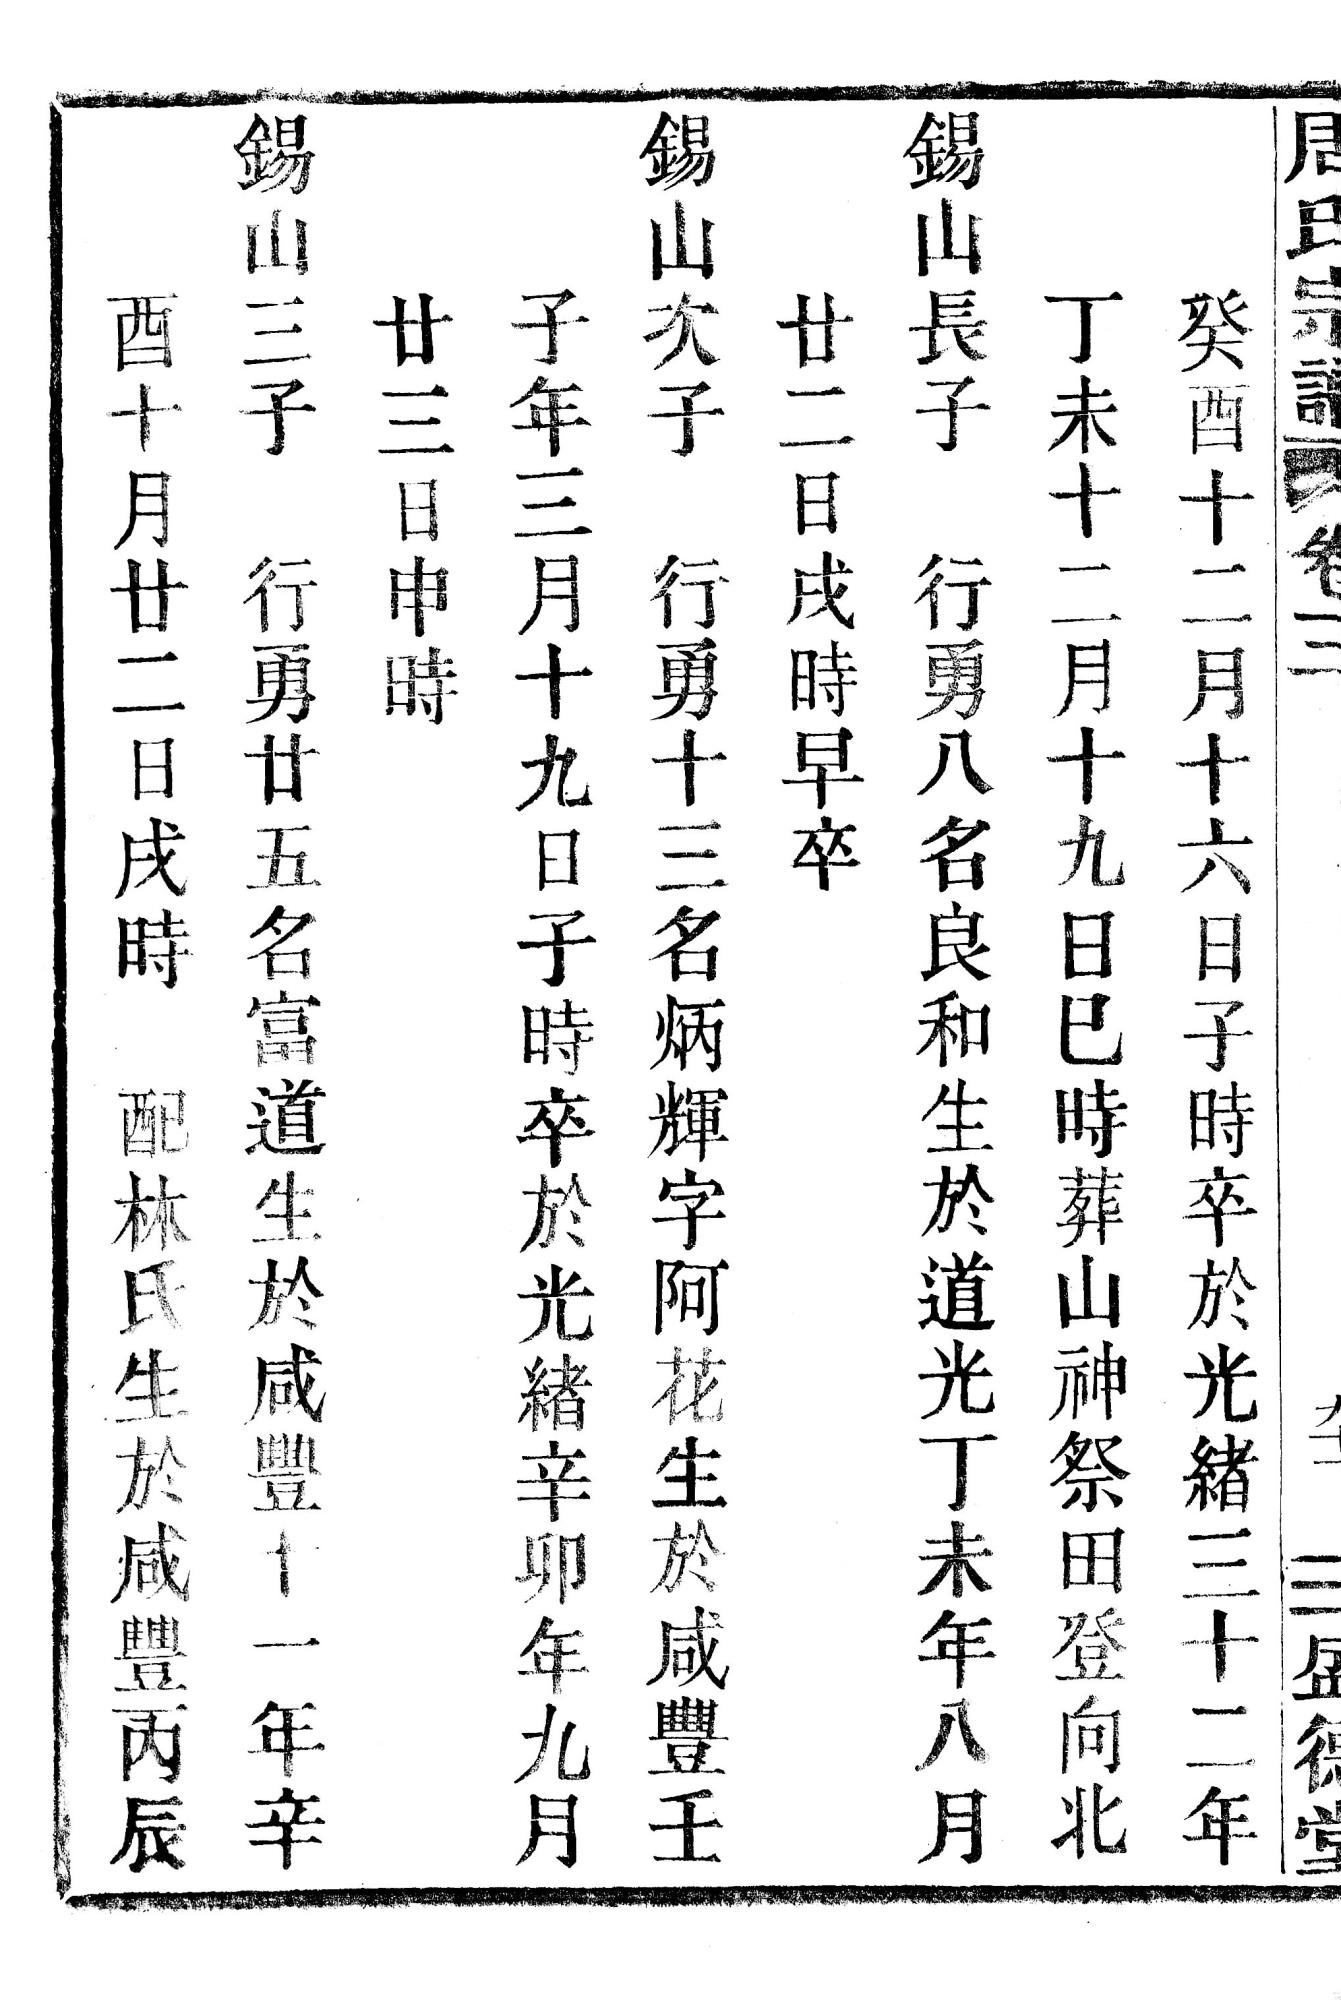 周氏宗譜 卷三 盛德堂
癸酉十二月十六日子時卒於光緒三十二年
丁未十二月十九日巳時葬山神祭田登向北
錫山長子 行勇八名良和生於道光丁未年八月
廿二日戌時早卒
錫山次子 行勇十三名炳輝字阿花生於咸豐壬
子年三月十九日子時卒於光緒辛卯年九月
廿三日申時
錫山三子 行勇廿五名富道生於咸豐十一年辛
酉十月廿二日戌時 配林氏生於咸豐丙辰